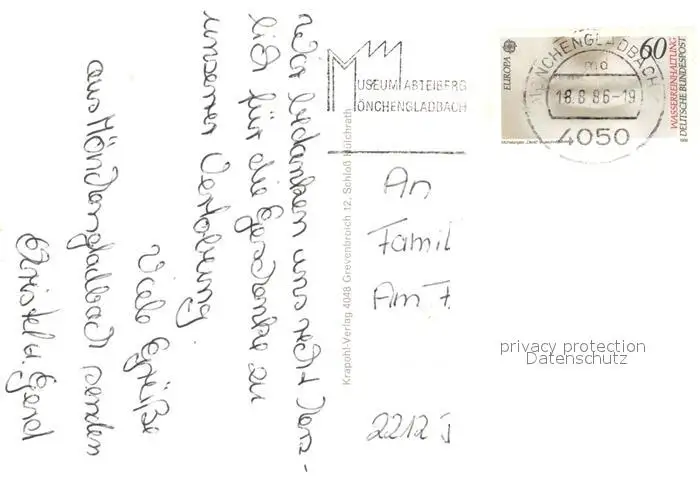 Wir bedanken uns recht herz-
lich für die Geschenke zu
unserer Verlobung.
Viele Grüße
aus Mönchengladbach senden
Christel u. Gerd
Krapohl-Verlag 4048 Grevenbroich 12, Schloß Hülchrath
MUSEUM ABTEIBERG
MÖNCHENGLADBACH
An
Famil
Am F.
2212 J
EUROPA
60
WASSERREINHALTUNG
DEUTSCHE BUNDESPOST
MÖNCHENGLADBACH
18.8.86-19
4050
privacy protection
Datenschutz